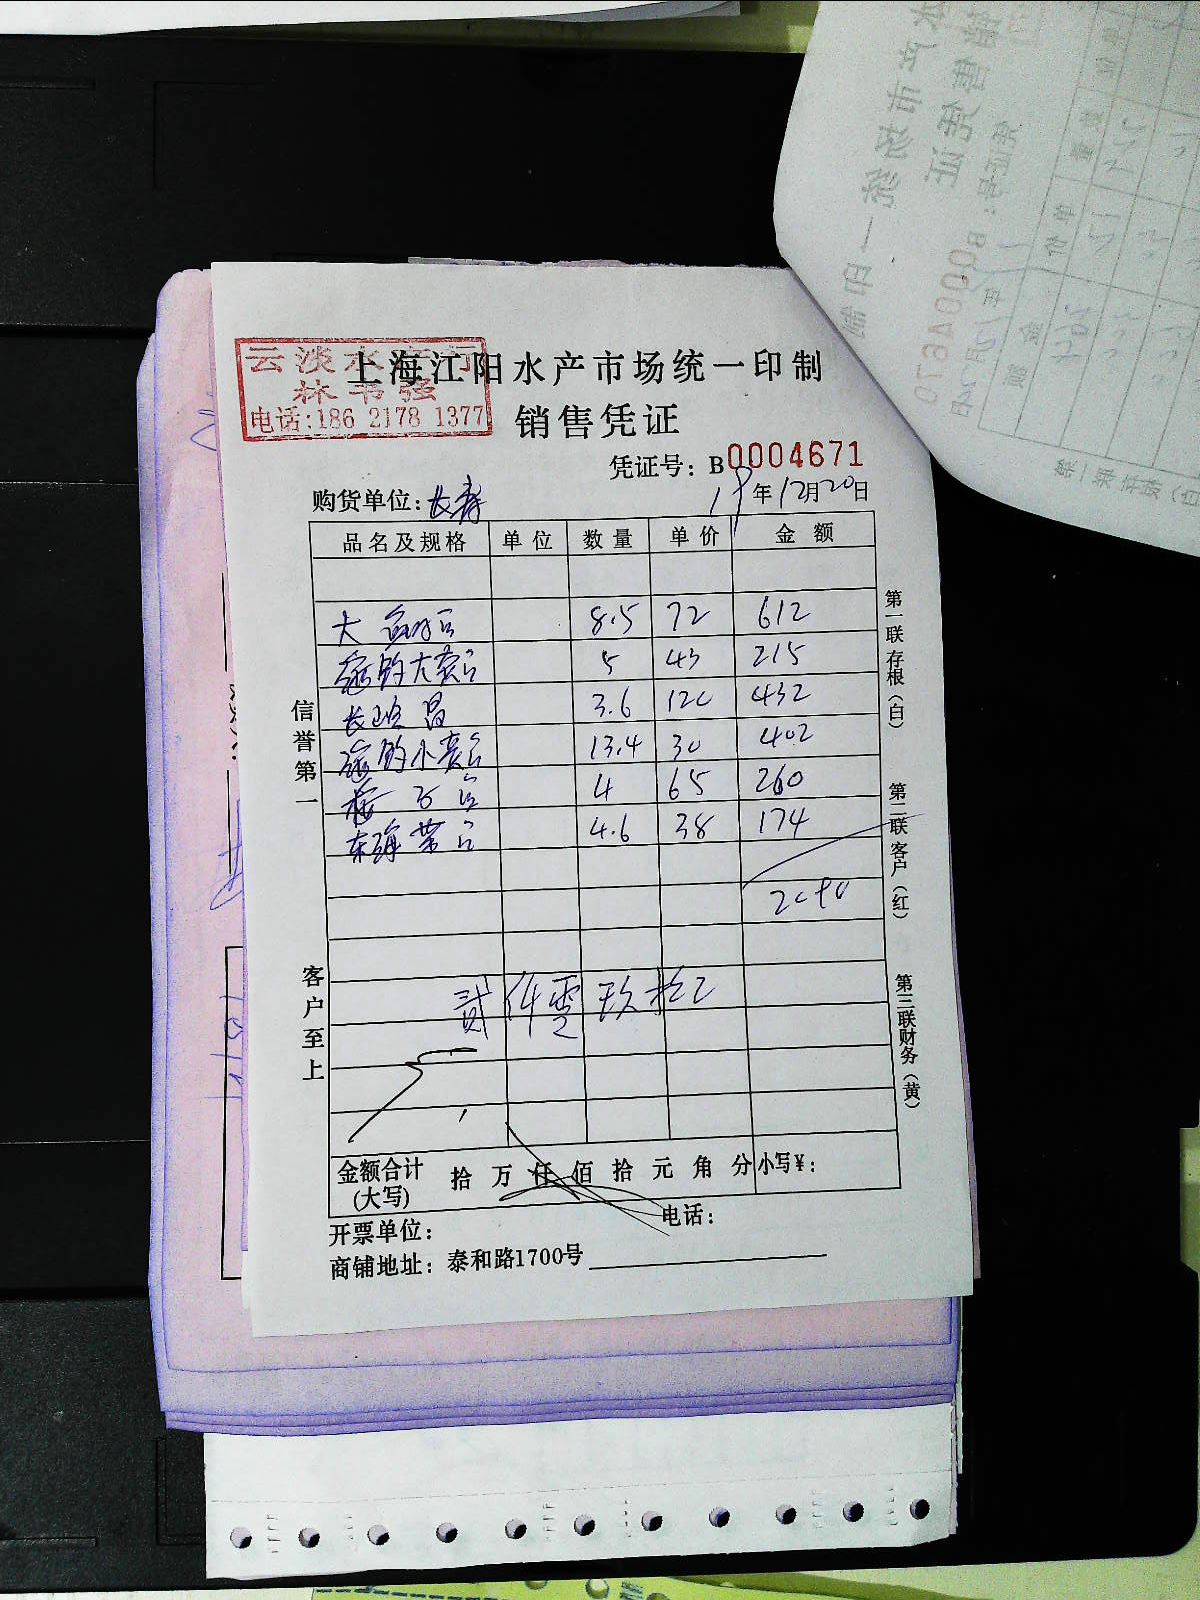 云淡水产行
林书强
电话:186 2178 1377
上海江阳水产市场统一印制
销售凭证
凭证号：B0004671
购货单位:长寿
19年12月20日
品名及规格 单位 数量 单价 金额
大 8.5 72 612
钓大黄 5 43 215
长 3.6 120 432
钓小黄 13.4 30 402
4 65 260
东海带 4.6 38 174
2090
贰仟零玖拾
金额合计(大写) 拾 万 仟 佰 拾 元 角 分 小写￥:
开票单位：
电话：
商铺地址：泰和路1700号
信誉第一
客户至上
第一联存根（白）
第二联客户（红）
第三联财务（黄）